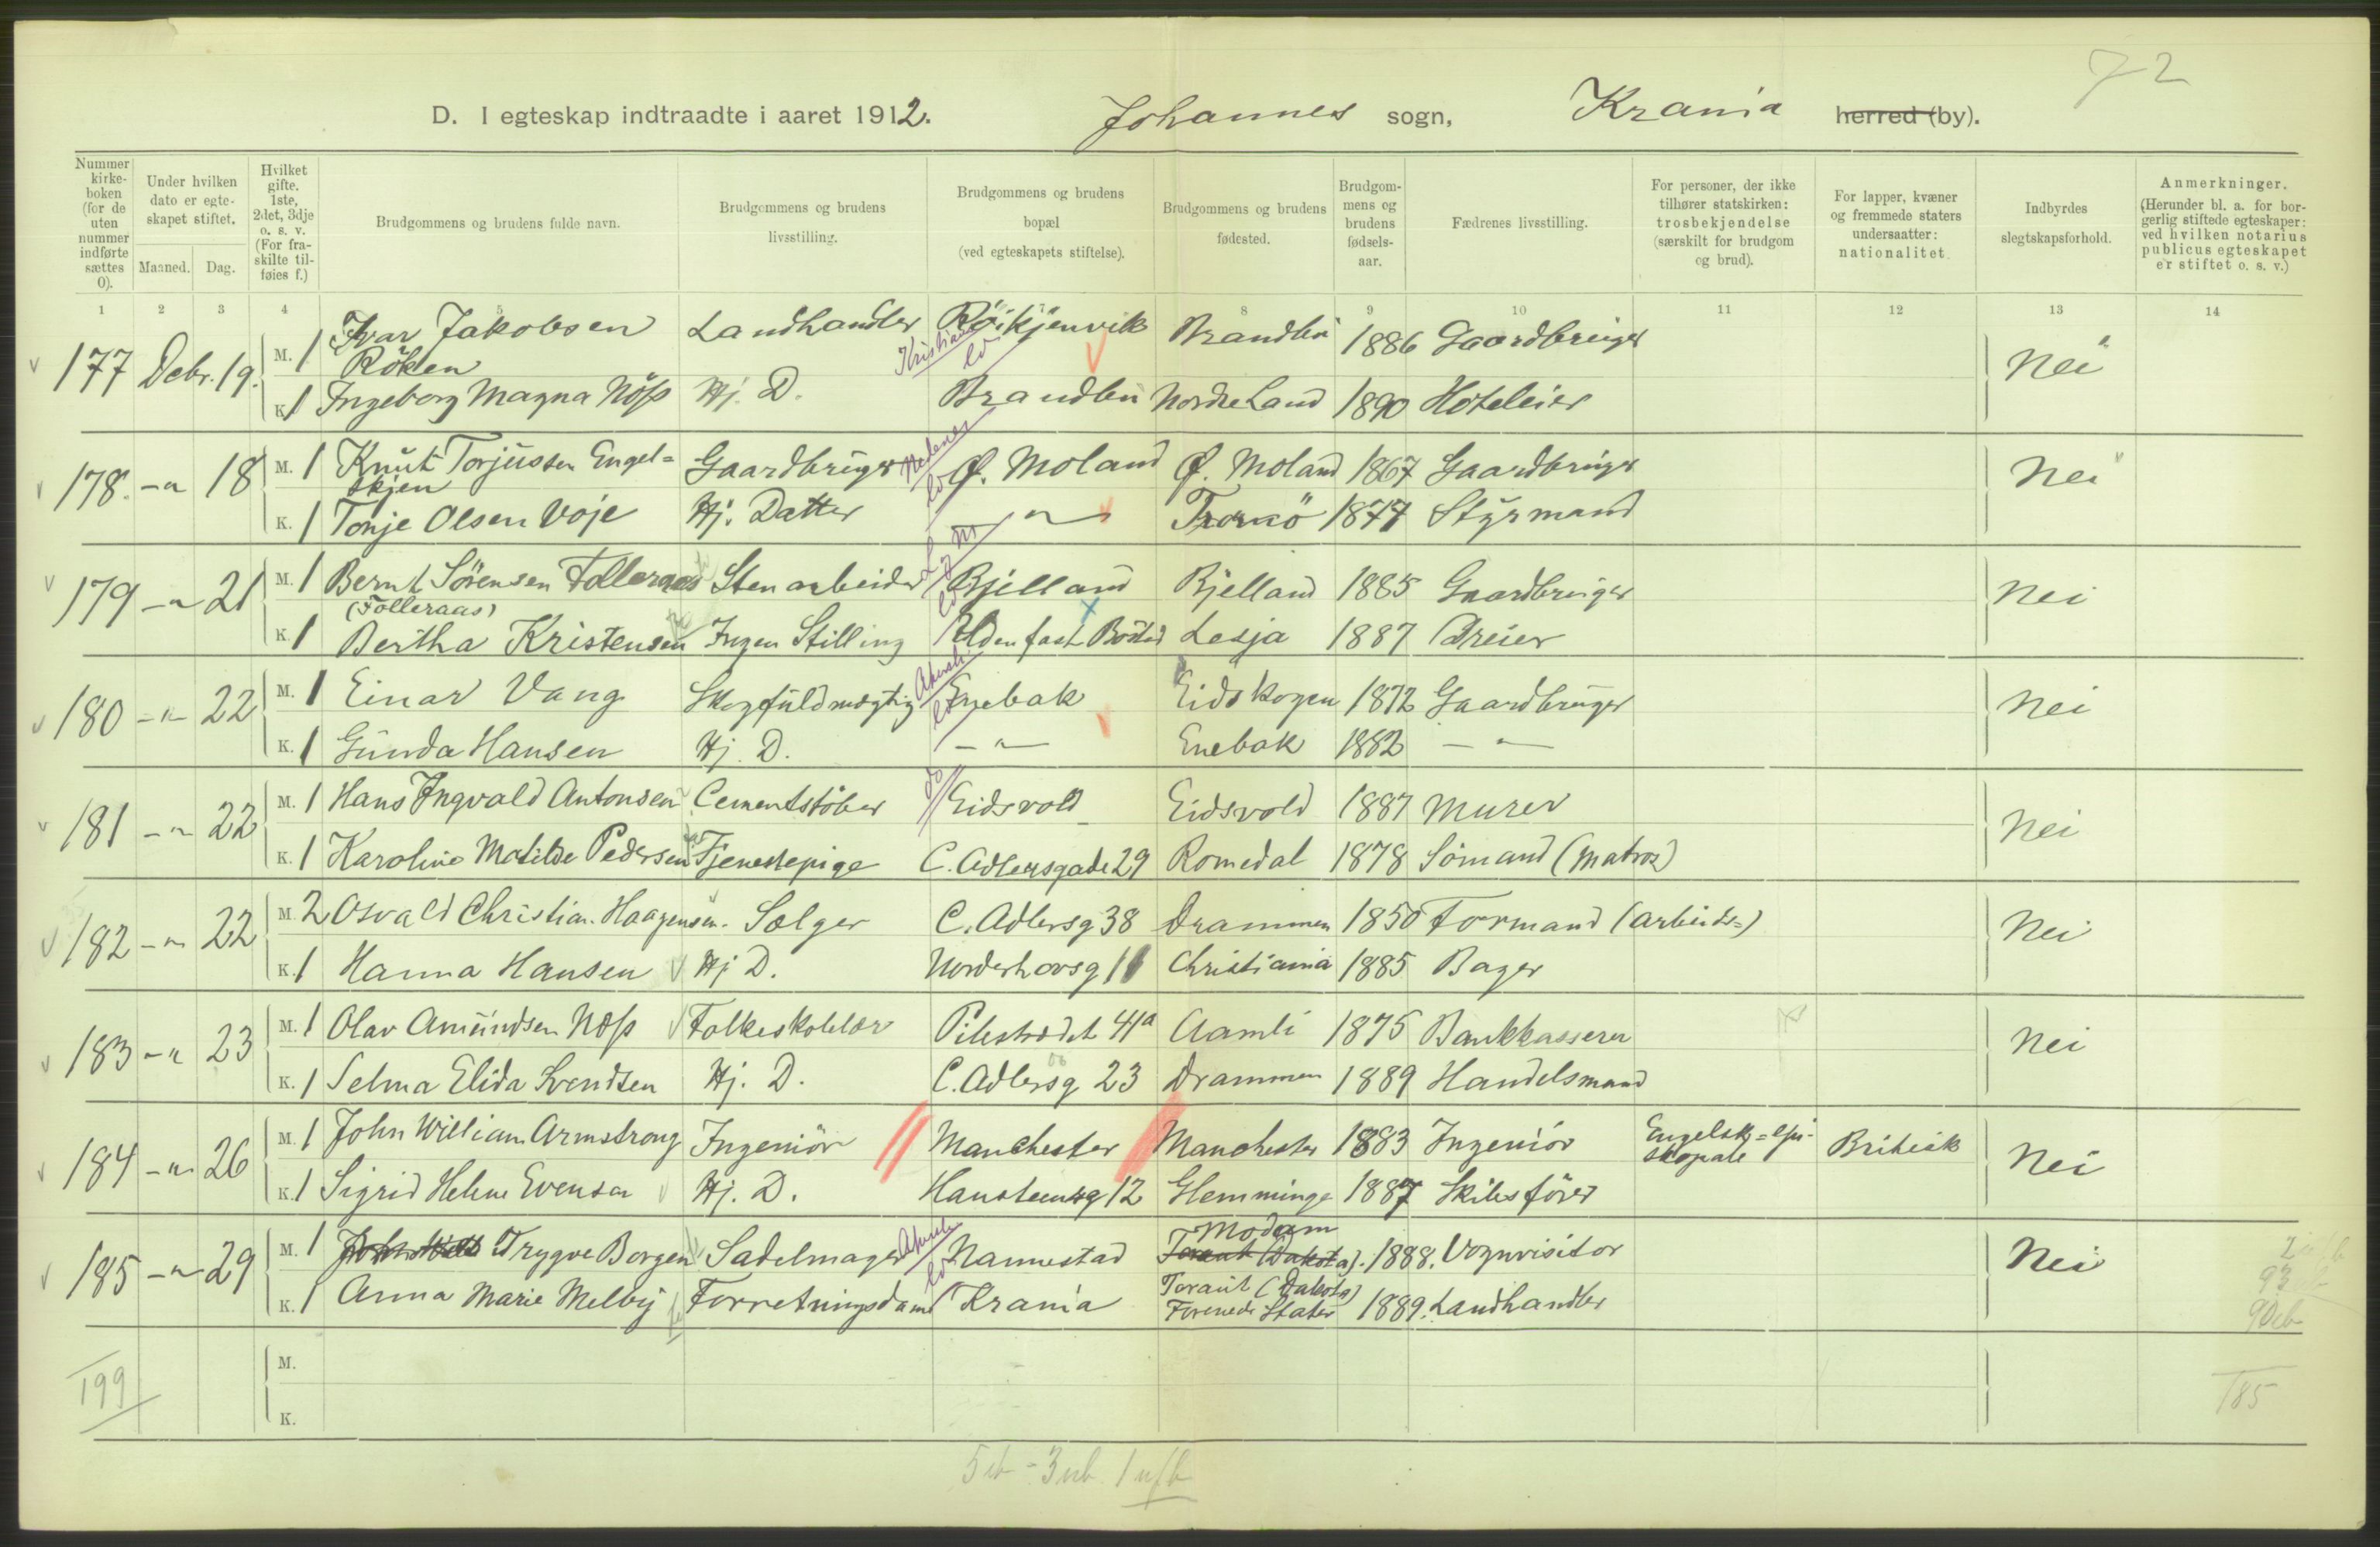 72
D. I egteskap indtraadte i aaret 1912. Johannes sogn, Krania herred (by).
Nummer kirke-boken (for de uten nummer indførte sættes 0).
Under hvilken dato er egte-skapet stiftet.
Maaned. Dag.
Hvilket gifte. 1ste, 2det, 3dje o. s. v. (For fra-skilte til-føies f.)
Brudgommens og brudens fulde navn.
Brudgommens og brudens livsstilling.
Brudgommens og brudens bopæl (ved egteskapets stiftelse).
Brudgommens og brudens fødested.
Brudgom-mens og brudens fødsels-aar.
Fædrenes livsstilling.
For personer, der ikke tilhører statskirken: trosbekjendelse (særskilt for brudgom og brud).
For lapper, kvæner og fremmede staters undersaatter: nationalitet.
Indbyrdes slegtskapsforhold.
Anmerkninger. (Herunder bl. a. for bor-gerlig stiftede egteskaper: ved hvilken notarius publicus egteskapet er stiftet o. s. v.)
1 2 3 4 5 8 9 10 11 12 13 14
177 Debr. 19. M. 1 Ivar Jakobsen Röken Landhandler Röikjenvik Brandbu 1886 Gaardbruger Nei
K. 1 Ingeborg Magna Nöss Hj. D. Brandbu Nordre Land 1890 Hoteleier
178. -"- 18 M. 1 Knut Torjussen Engel=skjen Gaardbruger Ø. Moland Ø. Moland 1867 Gaardbruger Nei
K. 1 Tonje Olsen Voje Hj. Datter -"- Tromö 1877 Styrmand
179 -"- 21 M. 1 Bernt Sörensen Folleraas (Folleraas) Stenarbeider Bjelland Bjelland 1885 Gaardbruger Nei
K. 1 Bertha Kristensen Ingen Stilling Uden fast Bosted Lesja 1887 Dreier
180 -"- 22 M. 1 Einar Vang Skogfuldmægtig Enebak Eidskogen 1872 Gaardbruger Nei
K. 1 Gunda Hansen Hj. D. -"- Enebak 1882 -"-
181 -"- 22 M. 1 Hans Ingvald Antonsen Cementstöber Eidsvold Eidsvold 1887 Murer Nei
K. 1 Karoline Matilde Pedersen Tjenestepige C. Adlersgade 29 Romedal 1878 Sömand (Matros)
182 -"- 22 M. 2 Osvald Christian Haagensen. Sælger C. Adlersg 38 Drammen 1850 Formand (arbeids=) Nei
K. 1 Hanna Hansen Hj D. Norderhovsg 11 Christiania 1885 Bager
183 -"- 23 M. 1 Olav Amundsen Næss Folkeskolelær Pilestrædet 41a Aamli 1875 Bankkasserer Nei
K. 1 Selma Elida Svendsen Hj. D. C. Adlersg 23 Drammen 1889 Handelsmand
184 -"- 26 M. 1 John William Armstrong Ingeniör Manchester Manchester 1883 Ingeniör Engelsk=epi-skopale Britisk Nei
K. 1 Sigrid Helene Evensen Hj. D. Hansteensg 12 Glemminge 1887 Skibsförer
185 -"- 29 M. 1 Trygve Borgen Sadelmager Nannestad Modum 1888. Vognvisitor Nei
K. 1 Anna Marie Melby Forretningsdame Krania (Dakota) Forenede Stater 1889. Landhandler
199 M.
K.
185